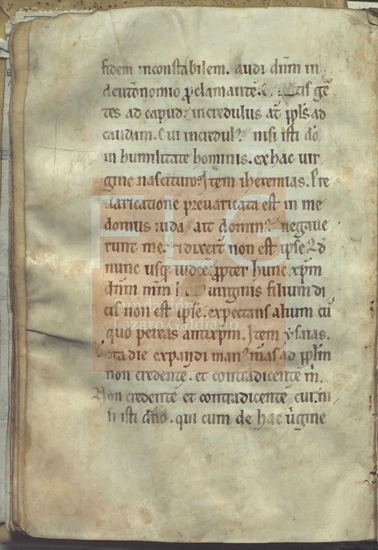 fidem inconstabilem. audi dn̄m in
deut̄onomio p̄clamantē. Erit is gē
tes ad capud: incredulus at̄ ipl̄s ad
caudam. Cui incredul? nisi isti dō
in humilitate hominis. ex hac uir
gine nascituro. Jtem iheremias. Pre
uaricatione prevaricata est in me
domus iuda ait domin? neggaue
runt me. dixert̄ non est ipse. Qd
nunc usq; iudei. ꝓpter hunc xp̄m
dn̄m nr̄m uirginis filium di
cit non est ipse. expectans alium cū
quo pereas antixp̄m. Jtem ysaias.
tota die expandi man? meas ad pl̄m
non credentē. et contradicentē m̄.
Non credentē et contradicentē cui. ni
si isti dn̄o. qui cum de hac ūgine